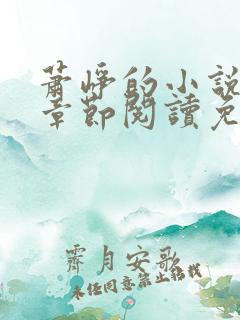 萧峥的小说
章节阅读免
霁月安歌
未经同意禁止转载